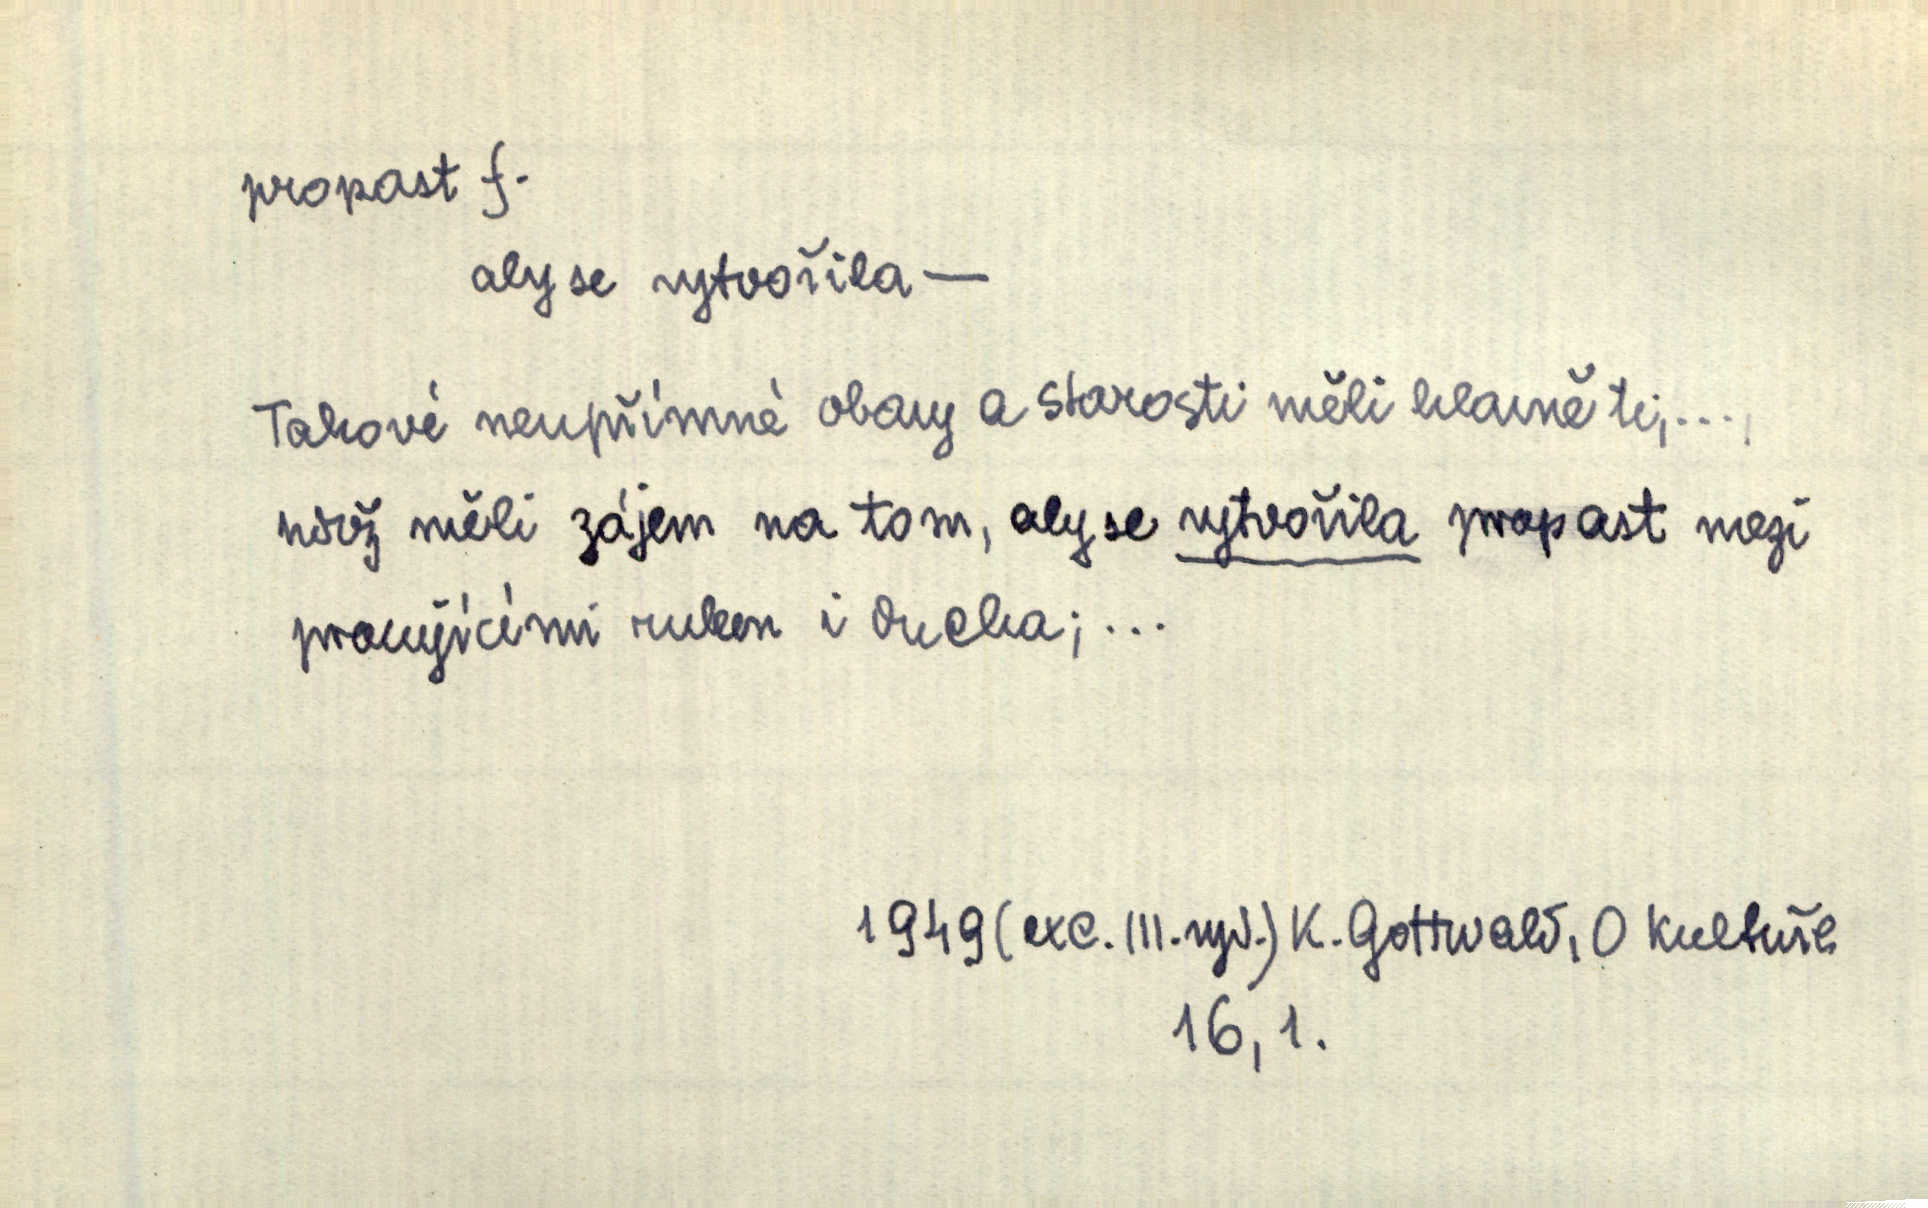 propast f.
aby se vytvořila —
Takové neupřímné obavy a starosti měli hlavně ti, ...,
kdož měli zájem na tom, aby se vytvořila propast mezi
pracujícími rukou i ducha; ...
1949 (exc. III. vyd.) K. Gottwald, O kultuře
16, 1.